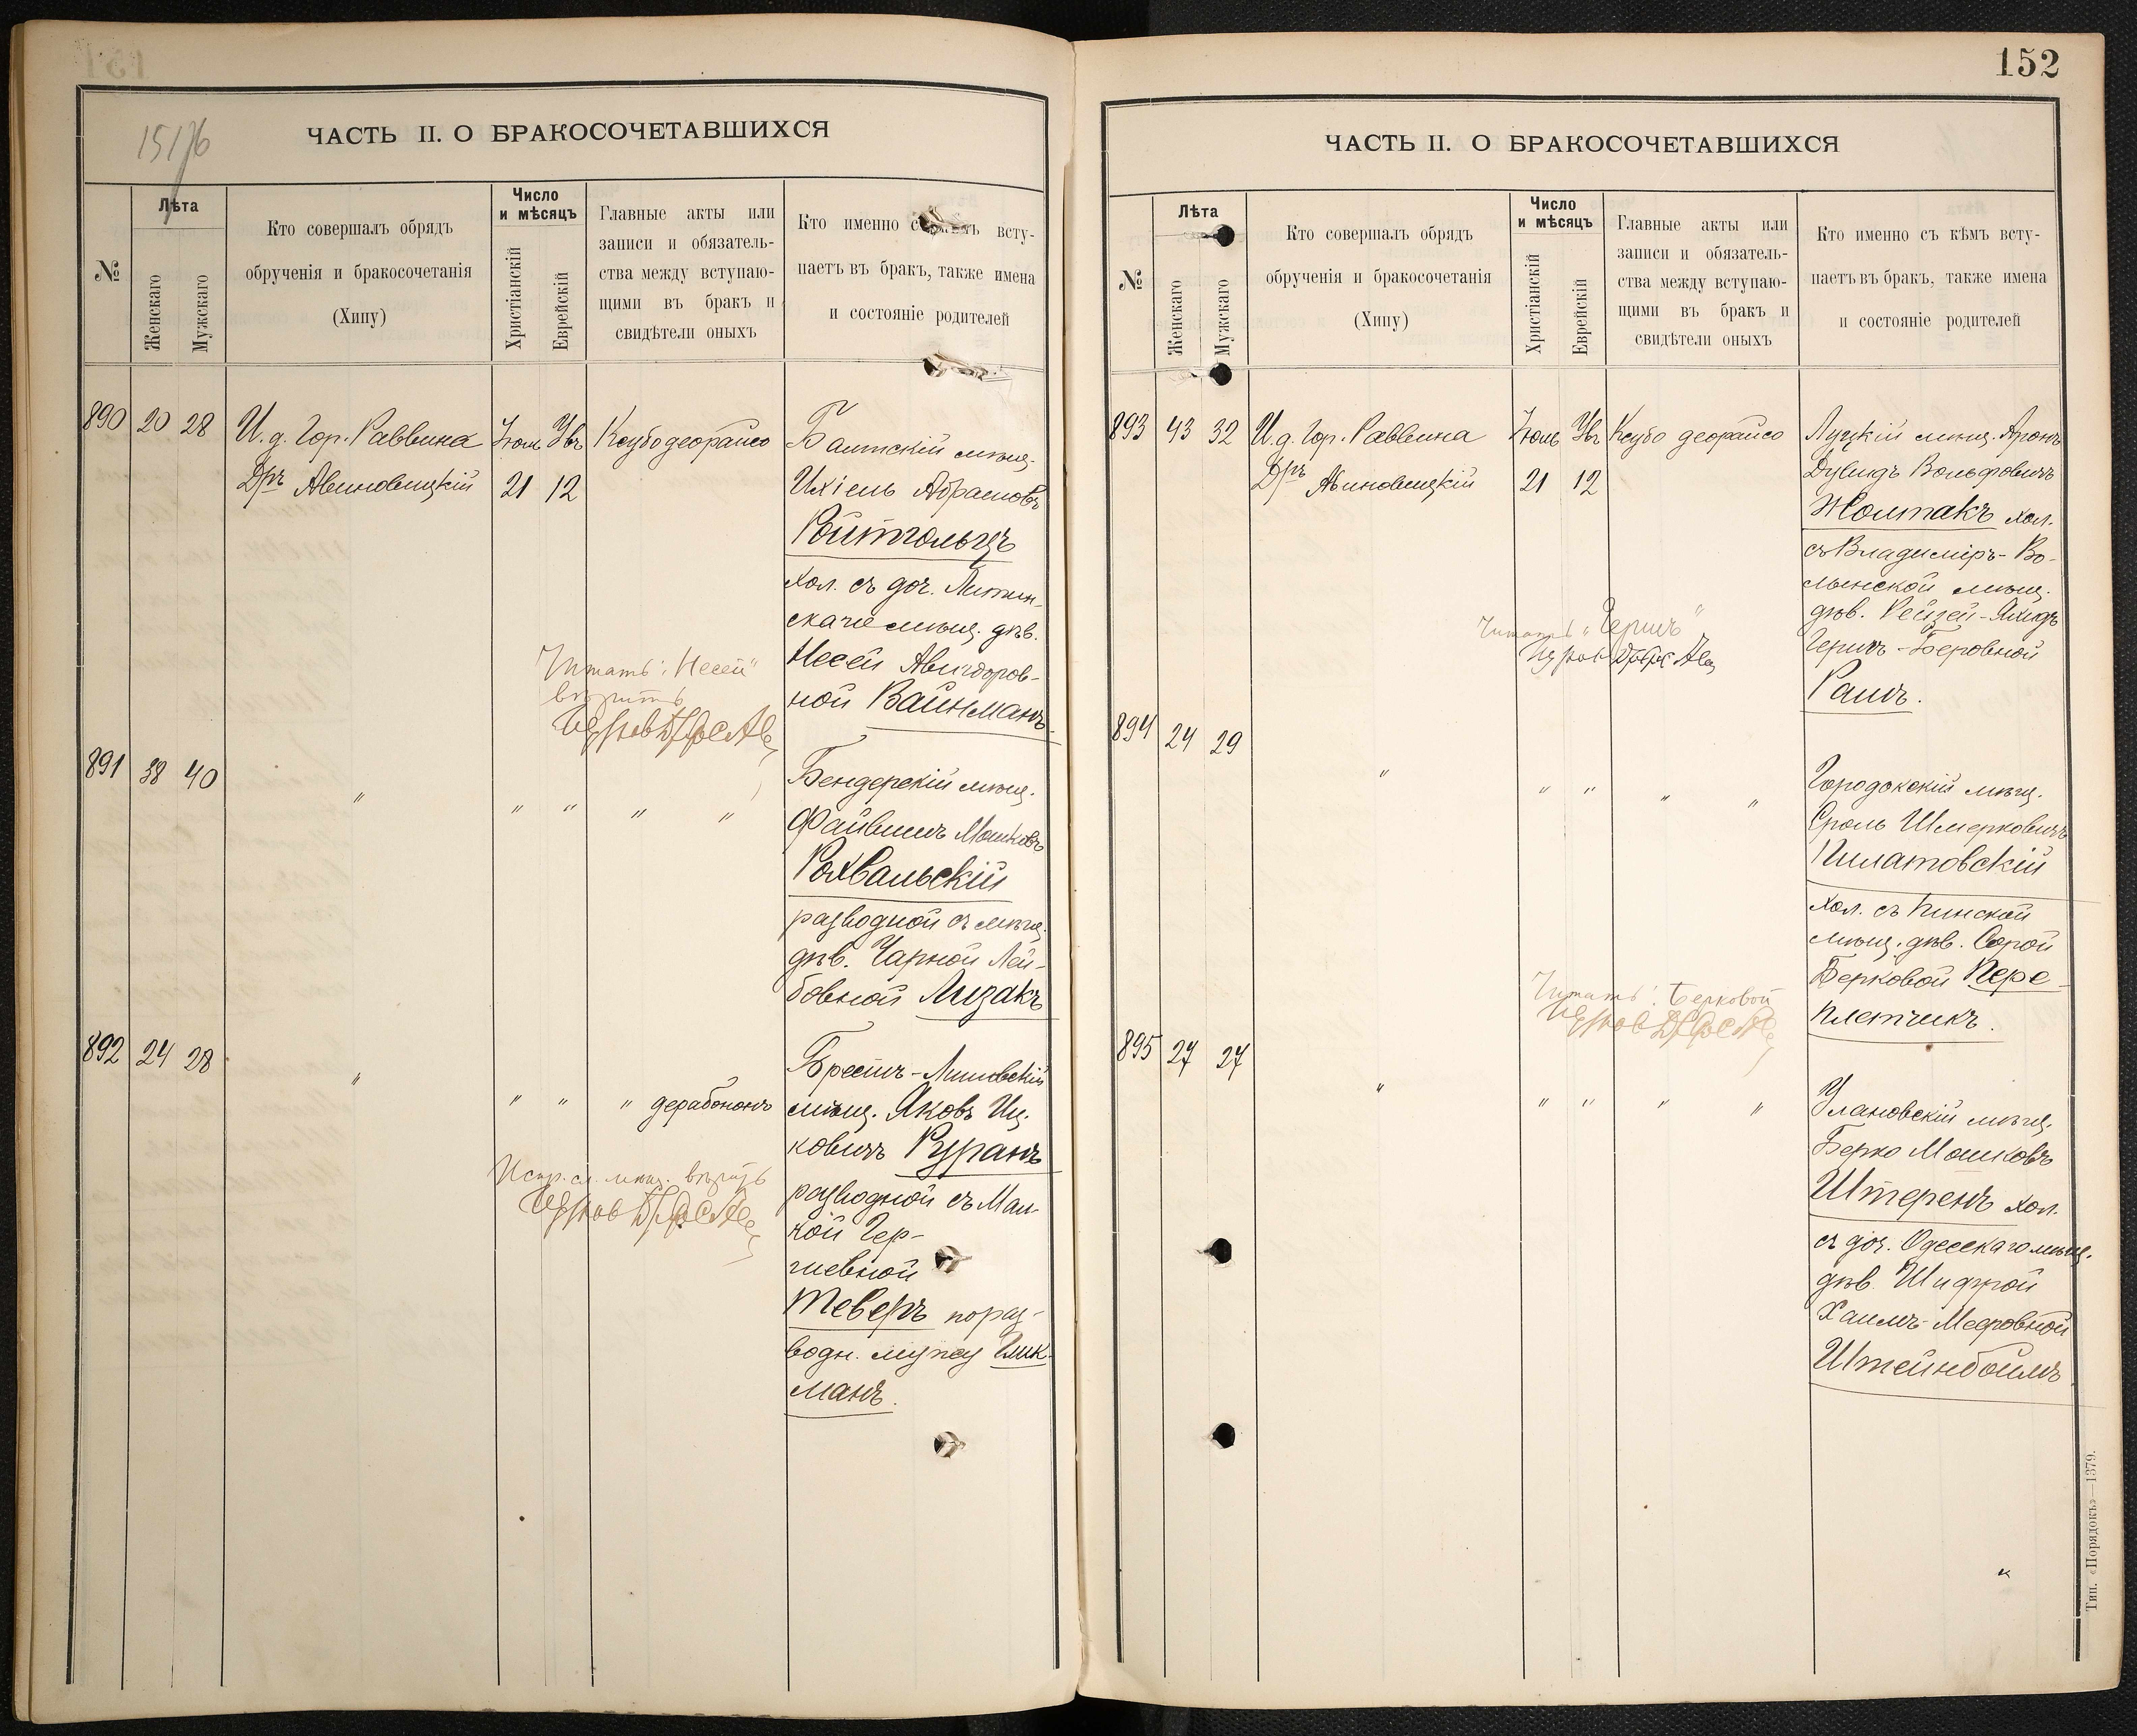 15176
ЧАСТЬ II. О БРАКОСОЧЕТАВШИХСЯ
№
Лѣта
Женскаго
Мужскаго
Кто совершалъ обрядъ
обрученія и бракосочетанія
(Хипу)
Число
и мѣсяцъ
Христіанскій
Еврейскій
Главные акты или
записи и обязатель-
ства между вступаю-
щими въ бракъ и
свидѣтели оныхъ
Кто именно съ кѣмъ всту-
паетъ въ бракъ, также имена
и состояніе родителей
890 20 28
И. д. Гор. Раввина
Дръ Авиновицкій
21 12
Балтскій мѣщ.
Ихіель Абрамовъ
Ройтгольцъ
хол. съ доч. Литин-
скаго мѣщ. дѣв.
Несей Авигдоров-
ной Вайнманъ.
Читать: "Несей"
вѣрить
891 38 40
" " " " "
Бендерскій мѣщ.
Файвишъ Мошковъ
Рохвальскій
разводной съ мѣщ.
дѣв. Чарной Лей-
бовной Лизакъ
892 24 28
" " " " дерабононъ
Брестъ-Литовскій
мѣщ. Яковъ Иц-
ковичъ Руранъ
разводной съ Мал-
кой Гер-
шевной
Теверъ по раз-
водн. мужу Глик-
манъ.
Испр. сл. мѣщ. вѣрить
152
ЧАСТЬ II. О БРАКОСОЧЕТАВШИХСЯ
№
Лѣта
Женскаго
Мужскаго
Кто совершалъ обрядъ
обрученія и бракосочетанія
(Хипу)
Число
и мѣсяцъ
Христіанскій
Еврейскій
Главные акты или
записи и обязатель-
ства между вступаю-
щими въ бракъ и
свидѣтели оныхъ
Кто именно съ кѣмъ всту-
паетъ въ бракъ, также имена
и состояніе родителей
893 43 32
И. д. Гор. Раввина
Дръ Авиновицкій
21 12
Луцкій мѣщ. Аронъ
Дувидъ Вольфовичъ
Жолтакъ хол.
съ Владиміръ-Во-
лынской мѣщ.
дѣв. Рейзей-
Гершъ-Беровной
Рашъ.
Читать "Гершъ"
894 24 29
" " " " "
Городокскій мѣщ.
Сроль Шмерковичъ
Пилатовскій
хол. съ Пинской
мѣщ. дѣв. Сорой
Берковой Пере-
плетчикъ.
Читать: Берковой
895 27 27
" " " " "
Улановскій мѣщ.
Берко Мошковъ
Штеренъ хол.
съ доч. Одесскаго мѣщ.
дѣв. Шифрой
Хаимъ-Мееровной
Штейнбоймъ
Тип. «Порядокъ»—1379.